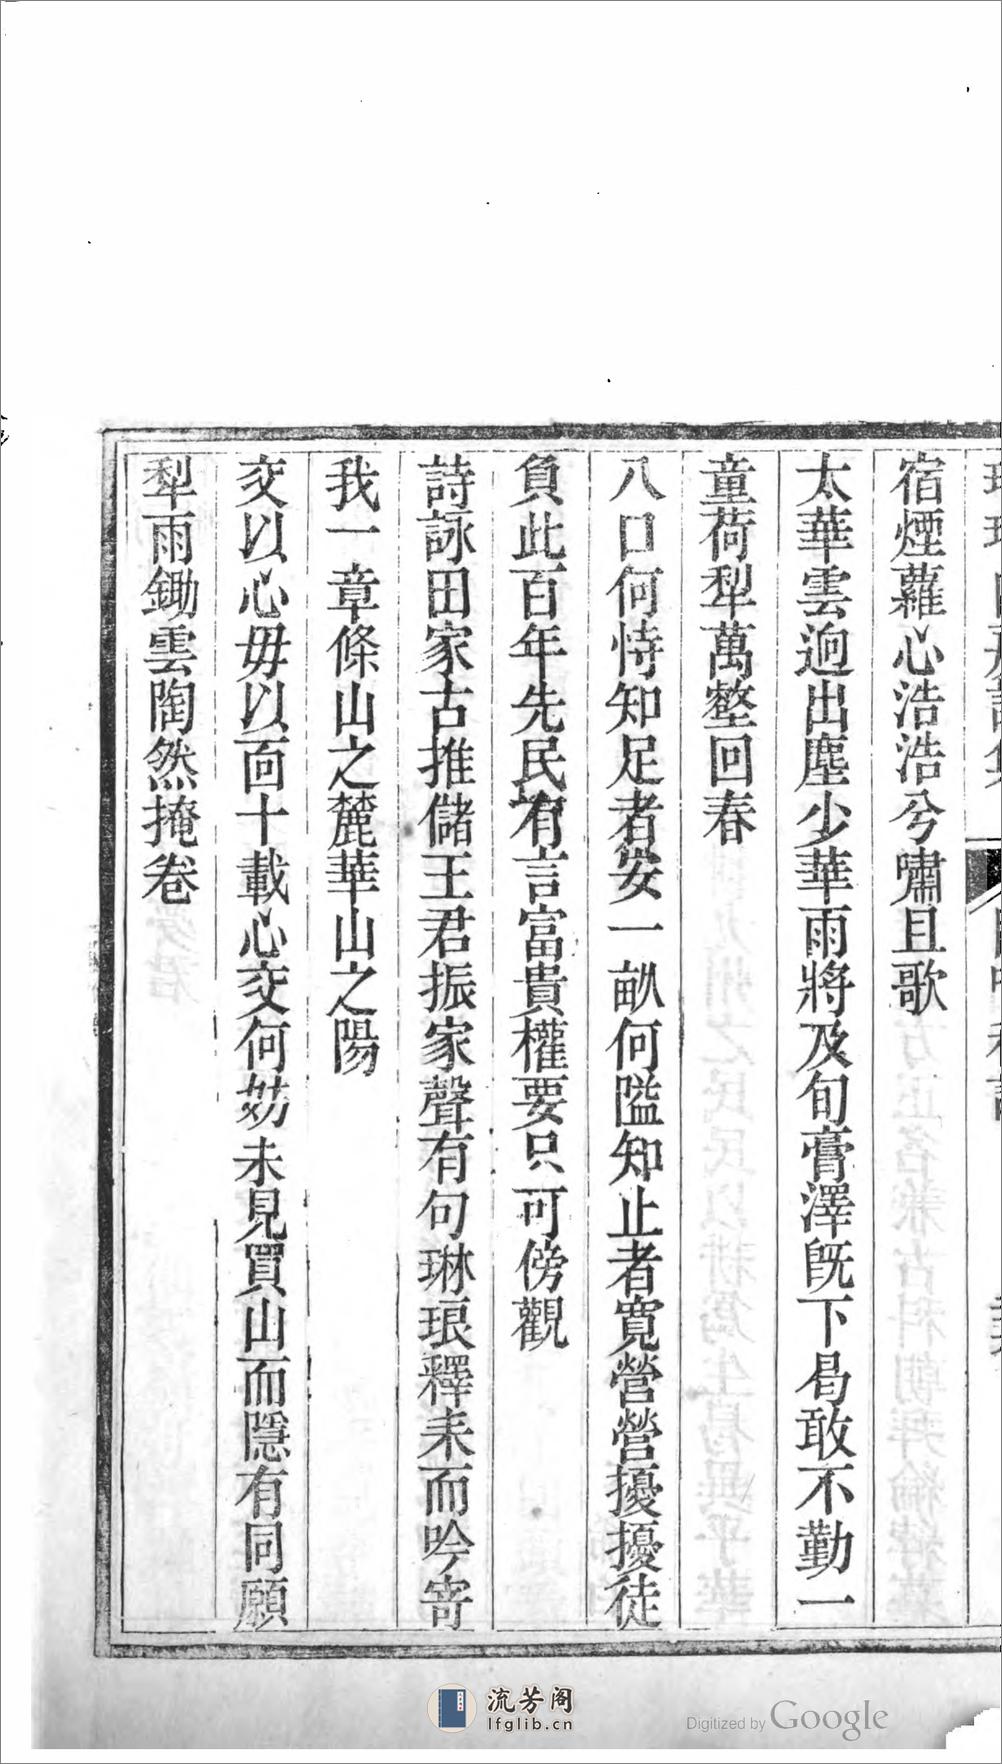 宿煙蘿心浩浩兮嘯且歌
太華雲逈出塵少華雨將及旬膏澤旣下曷敢不勤一
童荷犁萬壑回春
八口何恃知足者安一畝何隘知止者寬營營擾擾徒
負此百年先民有言富貴權要只可傍觀
詩詠田家古推儲王君振家聲有句琳琅釋耒而吟寄
我一章條山之麓華山之陽
交以心毋以面十載心交何妨未見買山而隱有同願
犁雨鋤雲陶然掩卷
流芳阁
lfglib.cn
Digitized by Google